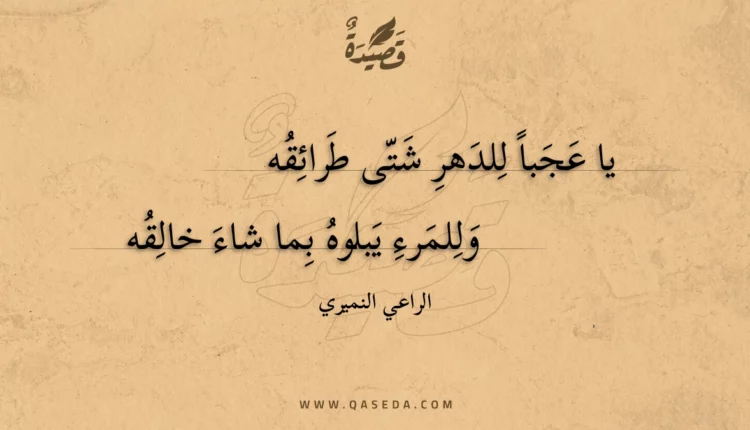 قَصِيدَةٌ
يا عَجَباً لِلدَهرِ شَتّى طَرائِقُه
وَلِلمَرءِ يَبلوهُ بِما شاءَ خالِقُه
الراعي النميري
WWW.QASEDA.COM